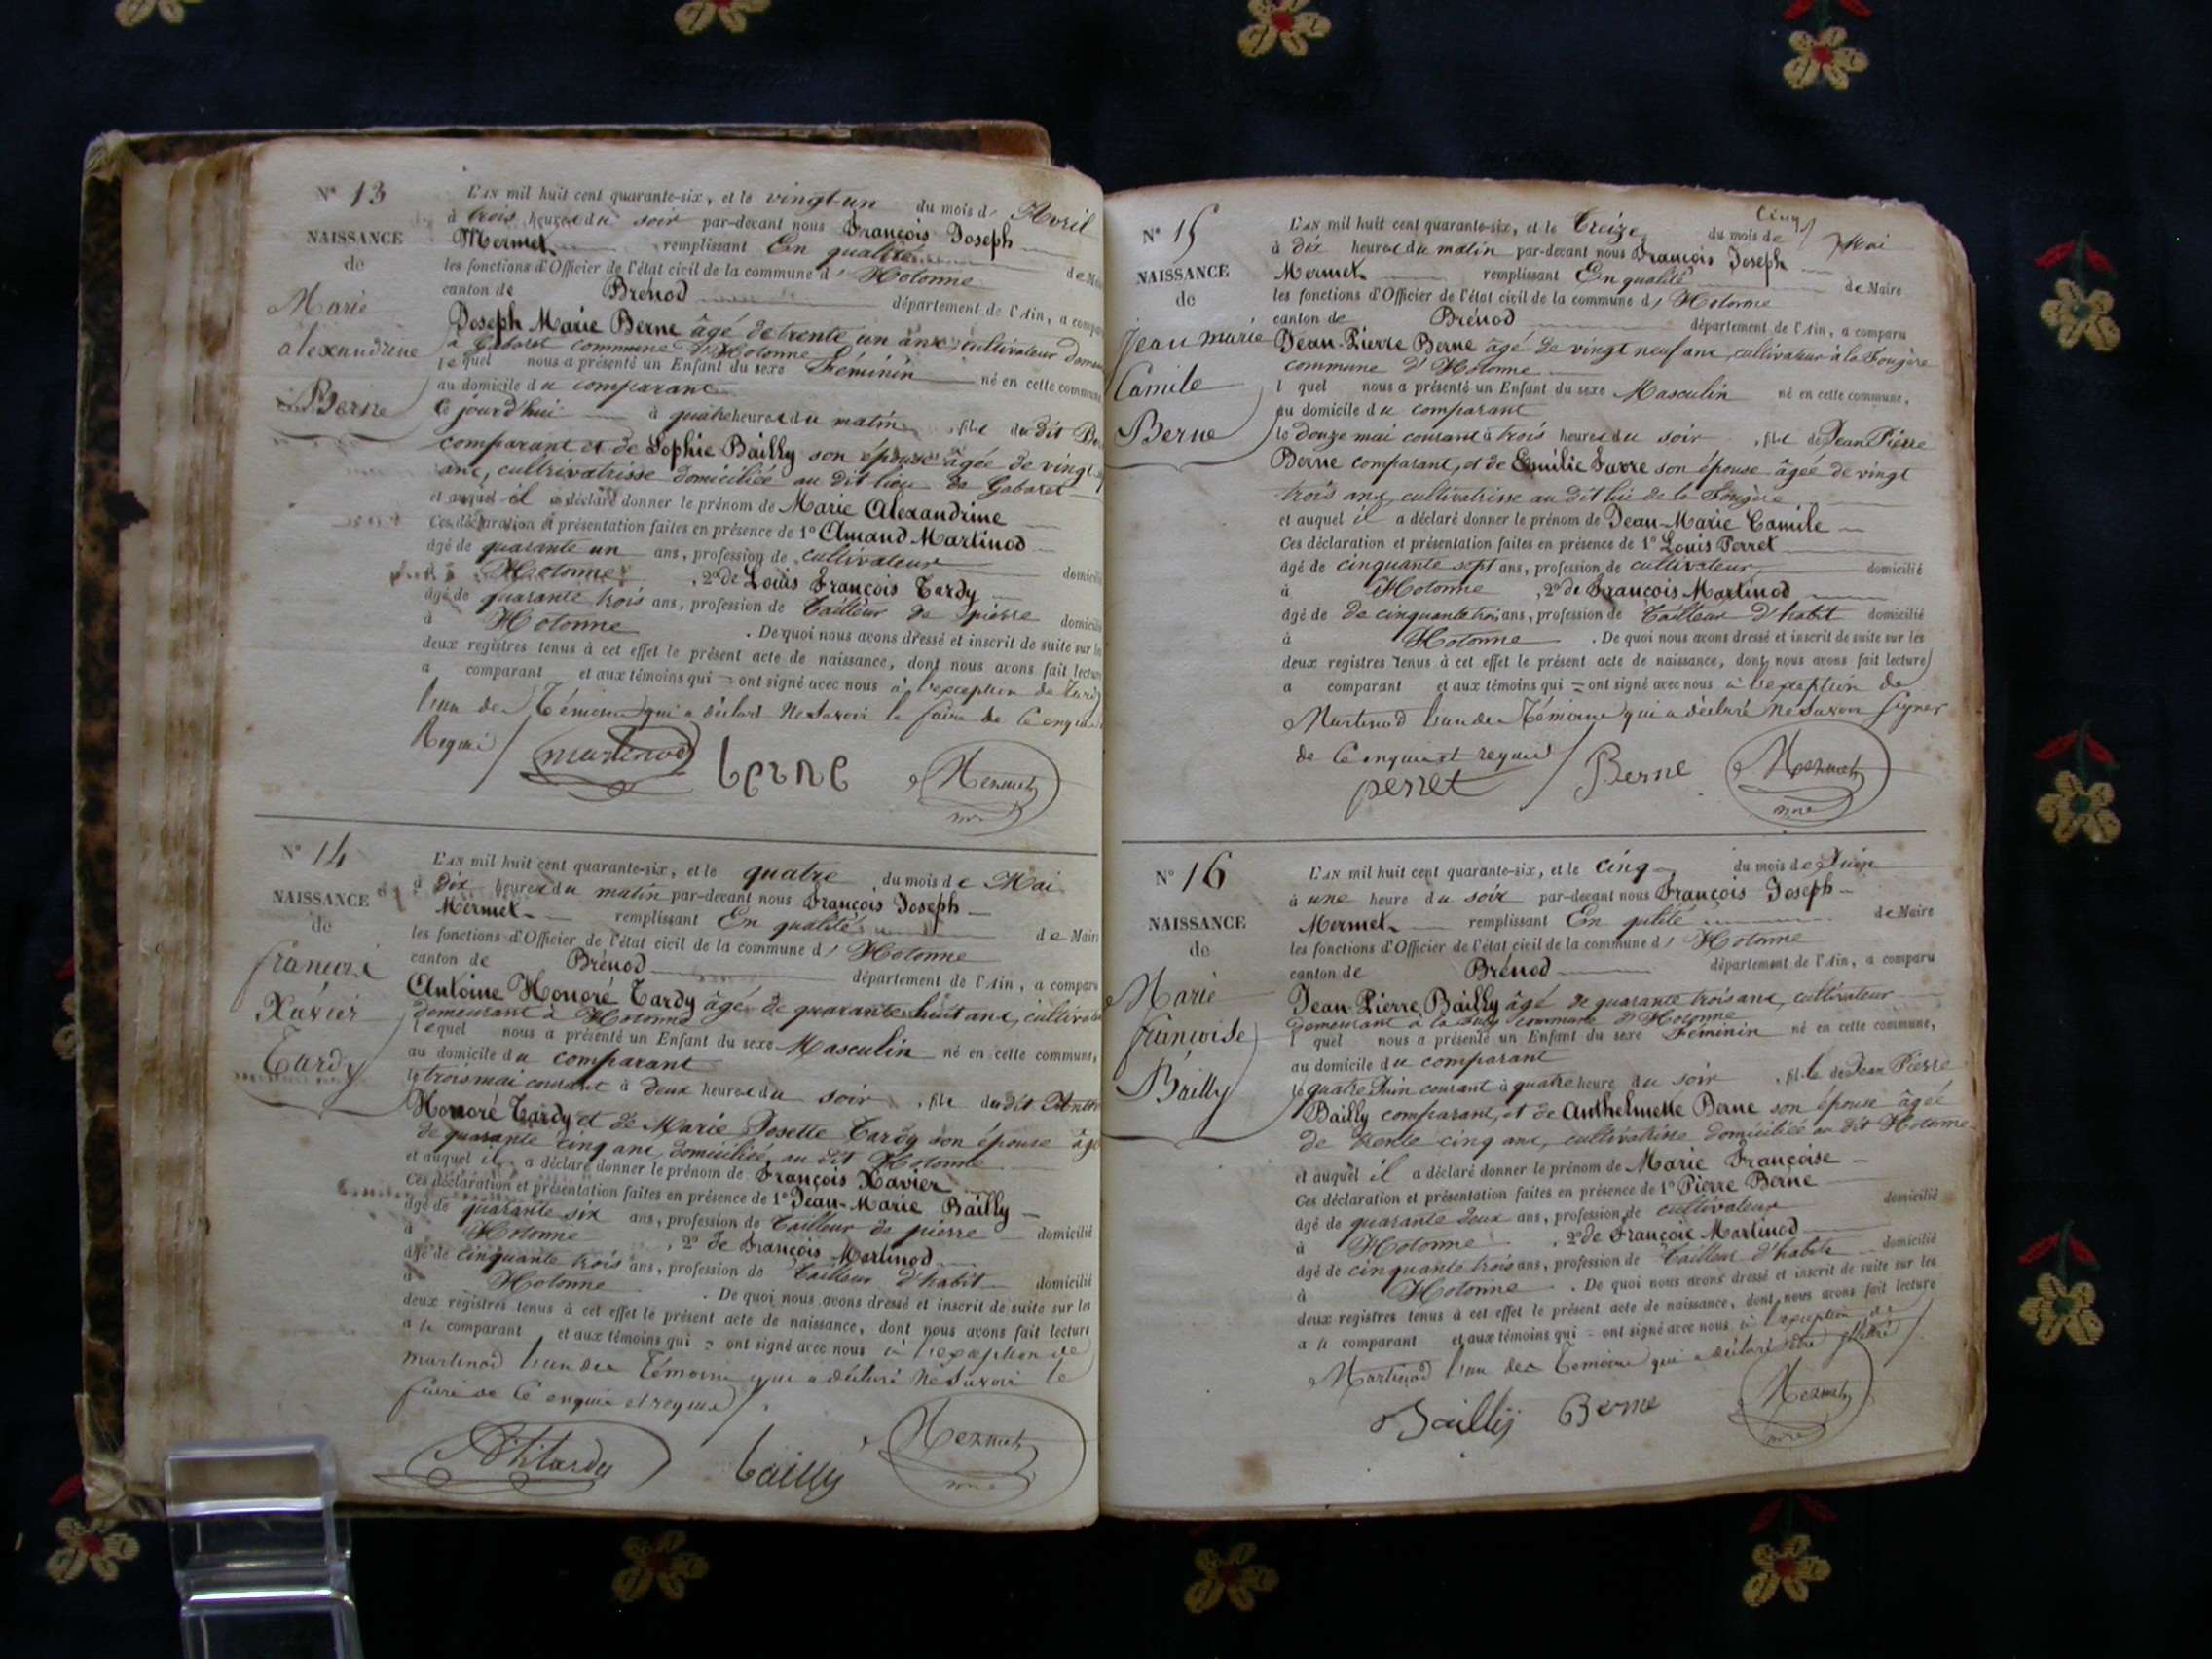 N° 13
NAISSANCE
de
Marie
alexandrine
Berne
L'AN mil huit cent quarante-six, et le vingt-un du mois d' Avril
à trois heures du soir par-devant nous François Joseph
Mermet remplissant En qualité de Maire
les fonctions d'Officier de l'état civil de la commune d' Hotonne
canton de Brénod département de l'Ain, a comparu
Joseph Marie Berne âgé de trente un ans, cultivateur
à Gabaret commune d'Hotonne
lequel nous a présenté un Enfant du sexe Féminin né en cette commune
au domicile du comparant
ce jourd'hui à quatre heures du matin, fille du dit
comparant et de Sophie Bailly son épouse âgée de vingt
ans, cultivatrisse domiciliée au dit lieu de Gabaret
et auquel il a déclaré donner le prénom de Marie Alexandrine
Ces déclaration et présentation faites en présence de 1° Amand Martinod
âgé de quarante un ans, profession de cultivateur
Hotonne, 2° de Louis François Tardy
âgé de quarante trois ans, profession de Tailleur de pierre domicilié
à Hotonne. De quoi nous avons dressé et inscrit de suite sur les
deux registres tenus à cet effet le présent acte de naissance, dont nous avons fait lecture
a comparant et aux témoins qui = ont signé avec nous à l'exception de Tardy
l'un des Témoins qui a déclaré Ne Savoir le faire de Ce enquis
Requis /
martinod berne Mermet
N° 14
NAISSANCE
de
françois
Xavier
Tardy
L'AN mil huit cent quarante-six, et le quatre du mois de Mai
à dix heures du matin par-devant nous François Joseph
Mermet remplissant En qualité de Maire
les fonctions d'Officier de l'état civil de la commune d' Hotonne
canton de Brénod département de l'Ain, a comparu
Antoine Honoré Tardy âgé de quarante huit ans, cultivateur
demeurant à Hotonne
lequel nous a présenté un Enfant du sexe Masculin né en cette commune,
au domicile du comparant
le trois mai courant à deux heures du soir, fils du dit
Honoré Tardy et de Marie Josette Tardy son épouse âgé
de quarante cinq ans, domiciliée au dit Hotonne
et auquel il a déclaré donner le prénom de François Xavier
Ces déclaration et présentation faites en présence de 1° Jean-Marie Bailly
âgé de quarante six ans, profession de Tailleur de pierre domicilié
à Hotonne, 2° de François Martinod
âgé de cinquante trois ans, profession de Tailleur d'habit domicilié
à Hotonne. De quoi nous avons dressé et inscrit de suite sur les
deux registres tenus à cet effet le présent acte de naissance, dont nous avons fait lecture
a le comparant et aux témoins qui = ont signé avec nous à l'exception de
martinod l'un des Témoins qui a déclaré Ne Savoir le
faire de Ce enquis et requis /.
bailly Mermet
N° 15
NAISSANCE
de
Jean marie
Camile
Berne
Cinq
L'AN mil huit cent quarante-six, et le Treize du mois de Mai
à dix heures du matin par-devant nous François Joseph
Mermet remplissant En qualité de Maire
les fonctions d'Officier de l'état civil de la commune d' Hotonne
canton de Brénod département de l'Ain, a comparu
Jean-Pierre Berne âgé de vingt neuf ans, cultivateur à la Fougère
commune d'Hotonne
l quel nous a présenté un Enfant du sexe Masculin né en cette commune,
au domicile du comparant
le douze mai courant à trois heures du soir, fils de Jean Pierre
Berne comparant, et de Emilie Favre son épouse âgée de vingt
trois ans, cultivatrisse au dit lieu de la Fougère
et auquel il a déclaré donner le prénom de Jean-Marie Camile
Ces déclaration et présentation faites en présence de 1° Louis Perret
âgé de cinquante sept ans, profession de cultivateur domicilié
à Hotonne, 2° de François Martinod
âgé de de cinquante trois ans, profession de Tailleur d'habit domicilié
à Hotonne. De quoi nous avons dressé et inscrit de suite sur les
deux registres tenus à cet effet le présent acte de naissance, dont nous avons fait lecture
a comparant et aux témoins qui = ont signé avec nous à l'exception de
Martinod l'un des Témoins qui a déclaré Ne Savoir signer
de Ce enquis et requis /
perret Berne Mermet
N° 16
NAISSANCE
de
Marie
françoise
Bailly
L'AN mil huit cent quarante-six, et le cinq du mois de Juin
à une heure du soir par-devant nous François Joseph
Mermet remplissant En qulité de Maire
les fonctions d'Officier de l'état civil de la commune d' Hotonne
canton de Brénod département de l'Ain, a comparu
Jean-Pierre Bailly âgé de quarante trois ans, cultivateur
demeurant à la commune d'Hotonne
l quel nous a présenté un Enfant du sexe Féminin né en cette commune,
au domicile du comparant
le quatre Juin courant à quatre heure du soir, fille de Jean Pierre
Bailly comparant, et de Anthelmette Berne son épouse âgée
de trente cinq ans, cultivatrisse domiciliée au dit Hotonne
et auquel il a déclaré donner le prénom de Marie Françoise
Ces déclaration et présentation faites en présence de 1° Pierre Berne
âgé de quarante deux ans, profession de cultivateur domicilié
à Hotonne, 2° de François Martinod
âgé de cinquante trois ans, profession de Tailleur d'habits domicilié
à Hotonne. De quoi nous avons dressé et inscrit de suite sur les
deux registres tenus à cet effet le présent acte de naissance, dont nous avons fait lecture
a le comparant et aux témoins qui = ont signé avec nous à l'exception de
Martinod l'un des Temoins qui a déclaré être illettré /
Bailly Berne Mermet